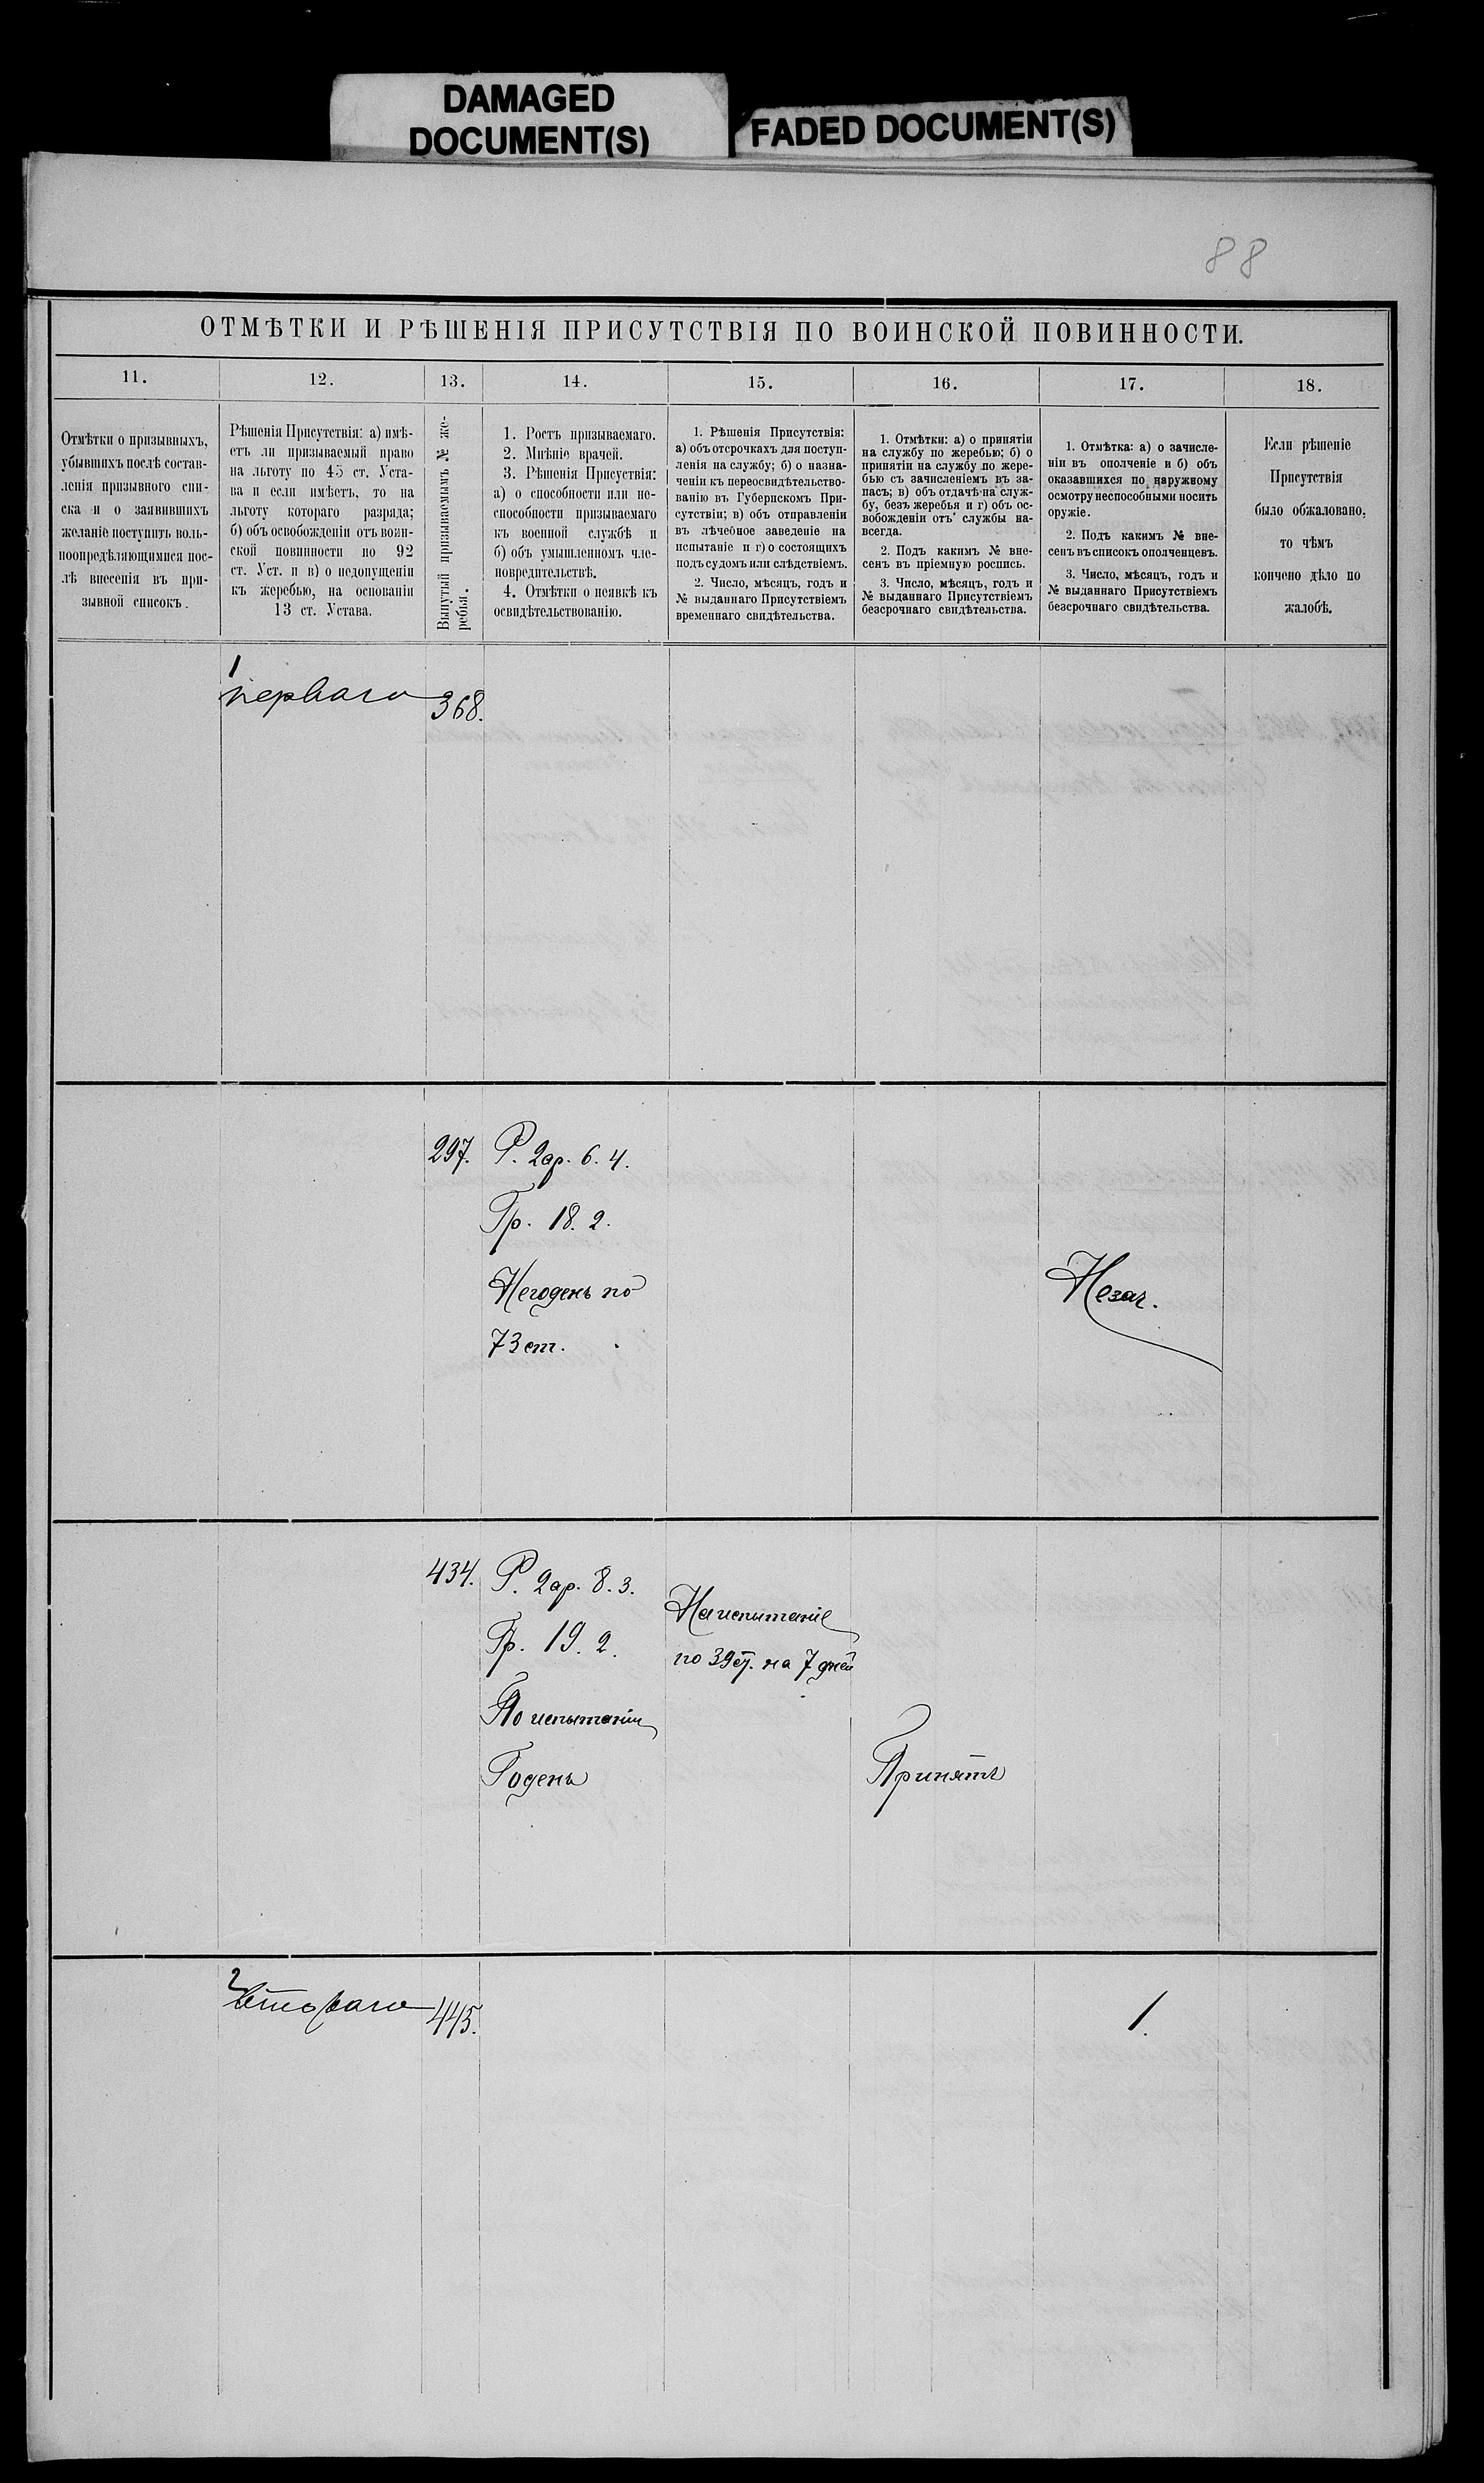 DAMAGED
DOCUMENT(S)
FADED DOCUMENT(S)
88
ОТМѢТКИ И РѢШЕНІЯ ПРИСУТСТВІЯ ПО ВОИНСКОЙ ПОВИННОСТИ.
11.
12.
13.
14.
15.
16.
17.
18.
Отмѣтки о призывныхъ,
убывшихъ послѣ состав-
ленія призывного спи-
ска и о заявившихъ
желаніе поступить воль-
ноопредѣляющимися пос-
лѣ внесенія въ при-
зывной списокъ.
Рѣшенія Присутствія: а) имѣ-
етъ ли призываемый право
на льготу по 45 ст. Уста-
ва и если имѣетъ, то на
льготу котораго разряда;
б) объ освобожденіи отъ воин-
ской повинности по 92
ст. Уст. и в) о недопущеніи
къ жеребью, на основаніи
13 ст. Устава.
Вынутый призываемымъ № же-
ребья.
1. Ростъ призываемаго.
2. Мнѣніе врачей.
3. Рѣшенія Присуствія:
а) о способности или не-
способности призываемаго
къ военной службѣ и
б) объ умышленномъ чле-
новредительствѣ.
4. Отмѣтки о неявкѣ къ
освидѣтельствованію.
1. Рѣшенія Присутствія:
а) объ отсрочкахъ для поступ-
ленія на службу; б) о назна-
ченіи къ переосвидѣтельство-
ванію въ Губернскомъ При-
сутствіи; в) объ отправленіи
въ лѣчебное заведеніе на
испытаніе и г) о состоящихъ
подъ судомъ или слѣдствіемъ.
2. Число, мѣсяцъ, годъ и
№ выданнаго Присутствіемъ
временнаго свидѣтельства.
1. Отмѣтки: а) о принятіи
на службу по жеребью; б) о
принятіи на службу по жере-
бью съ зачисленіемъ въ за-
пасъ; в) объ отдачѣ на служ-
бу, безъ жеребья и г) объ ос-
вобожденіи отъ службы на-
всегда.
2. Подъ какимъ № вне-
сенъ въ пріемную роспись.
3. Число, мѣсяцъ, годъ и
№ выданнаго Присутствіемъ
безсрочнаго свидѣтельства.
1. Отмѣтка: а) о зачисле-
ніи въ ополченіе и б) объ
оказавшихся по наружному
осмотру неспособными носить
оружіе.
2. Подъ какимъ № вне-
сенъ въ списокъ ополченцевъ.
3. Число, мѣсяцъ, годъ и
№ выданнаго Присутствіемъ
безсрочнаго свидѣтельства.
Если рѣшеніе
Присутствія
было обжаловано,
то чѣмъ
кончено дѣло по
жалобѣ.
1
перваго
368.
297.
Р. 2ар. 6. 4.
Гр. 18. 2.
Негоденъ по
73 ст.
Незач.
434.
Р. 2ар. 8. 3.
Гр. 19. 2.
По испытаніи
Годенъ
На испытаніе
по 39 ст. на 7 дней
Принятъ
2
втораго
445.
1.